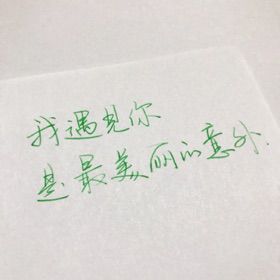 我遇见你
是最美丽的意外.